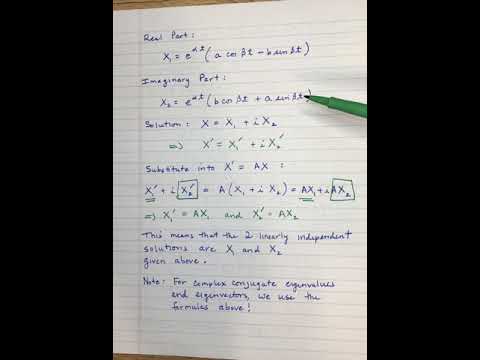 Real Part:
X₁ = e^αt (a cos βt − b sin βt)
Imaginary Part:
X₂ = e^αt (b cos βt + a sin βt)
Solution: X = X₁ + i X₂
⇒ X' = X₁' + i X₂'
Substitute into X' = AX :
X₁' + i X₂' = A (X₁ + i X₂) = AX₁ + i AX₂
⇒ X₁' = AX₁ and X₂' = AX₂
This means that the 2 linearly independent
solutions are X₁ and X₂
given above.
Note: For complex conjugate eigenvalues
and eigenvectors, we use the
formulas above!